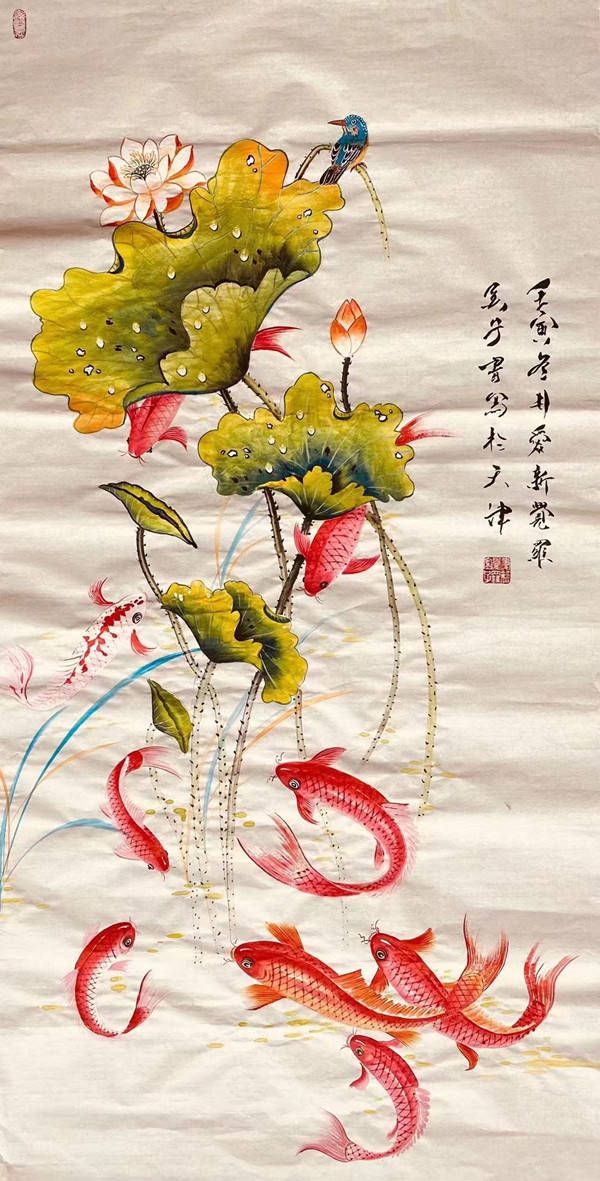 壬寅冬月愛新覺羅
子書寫於天津